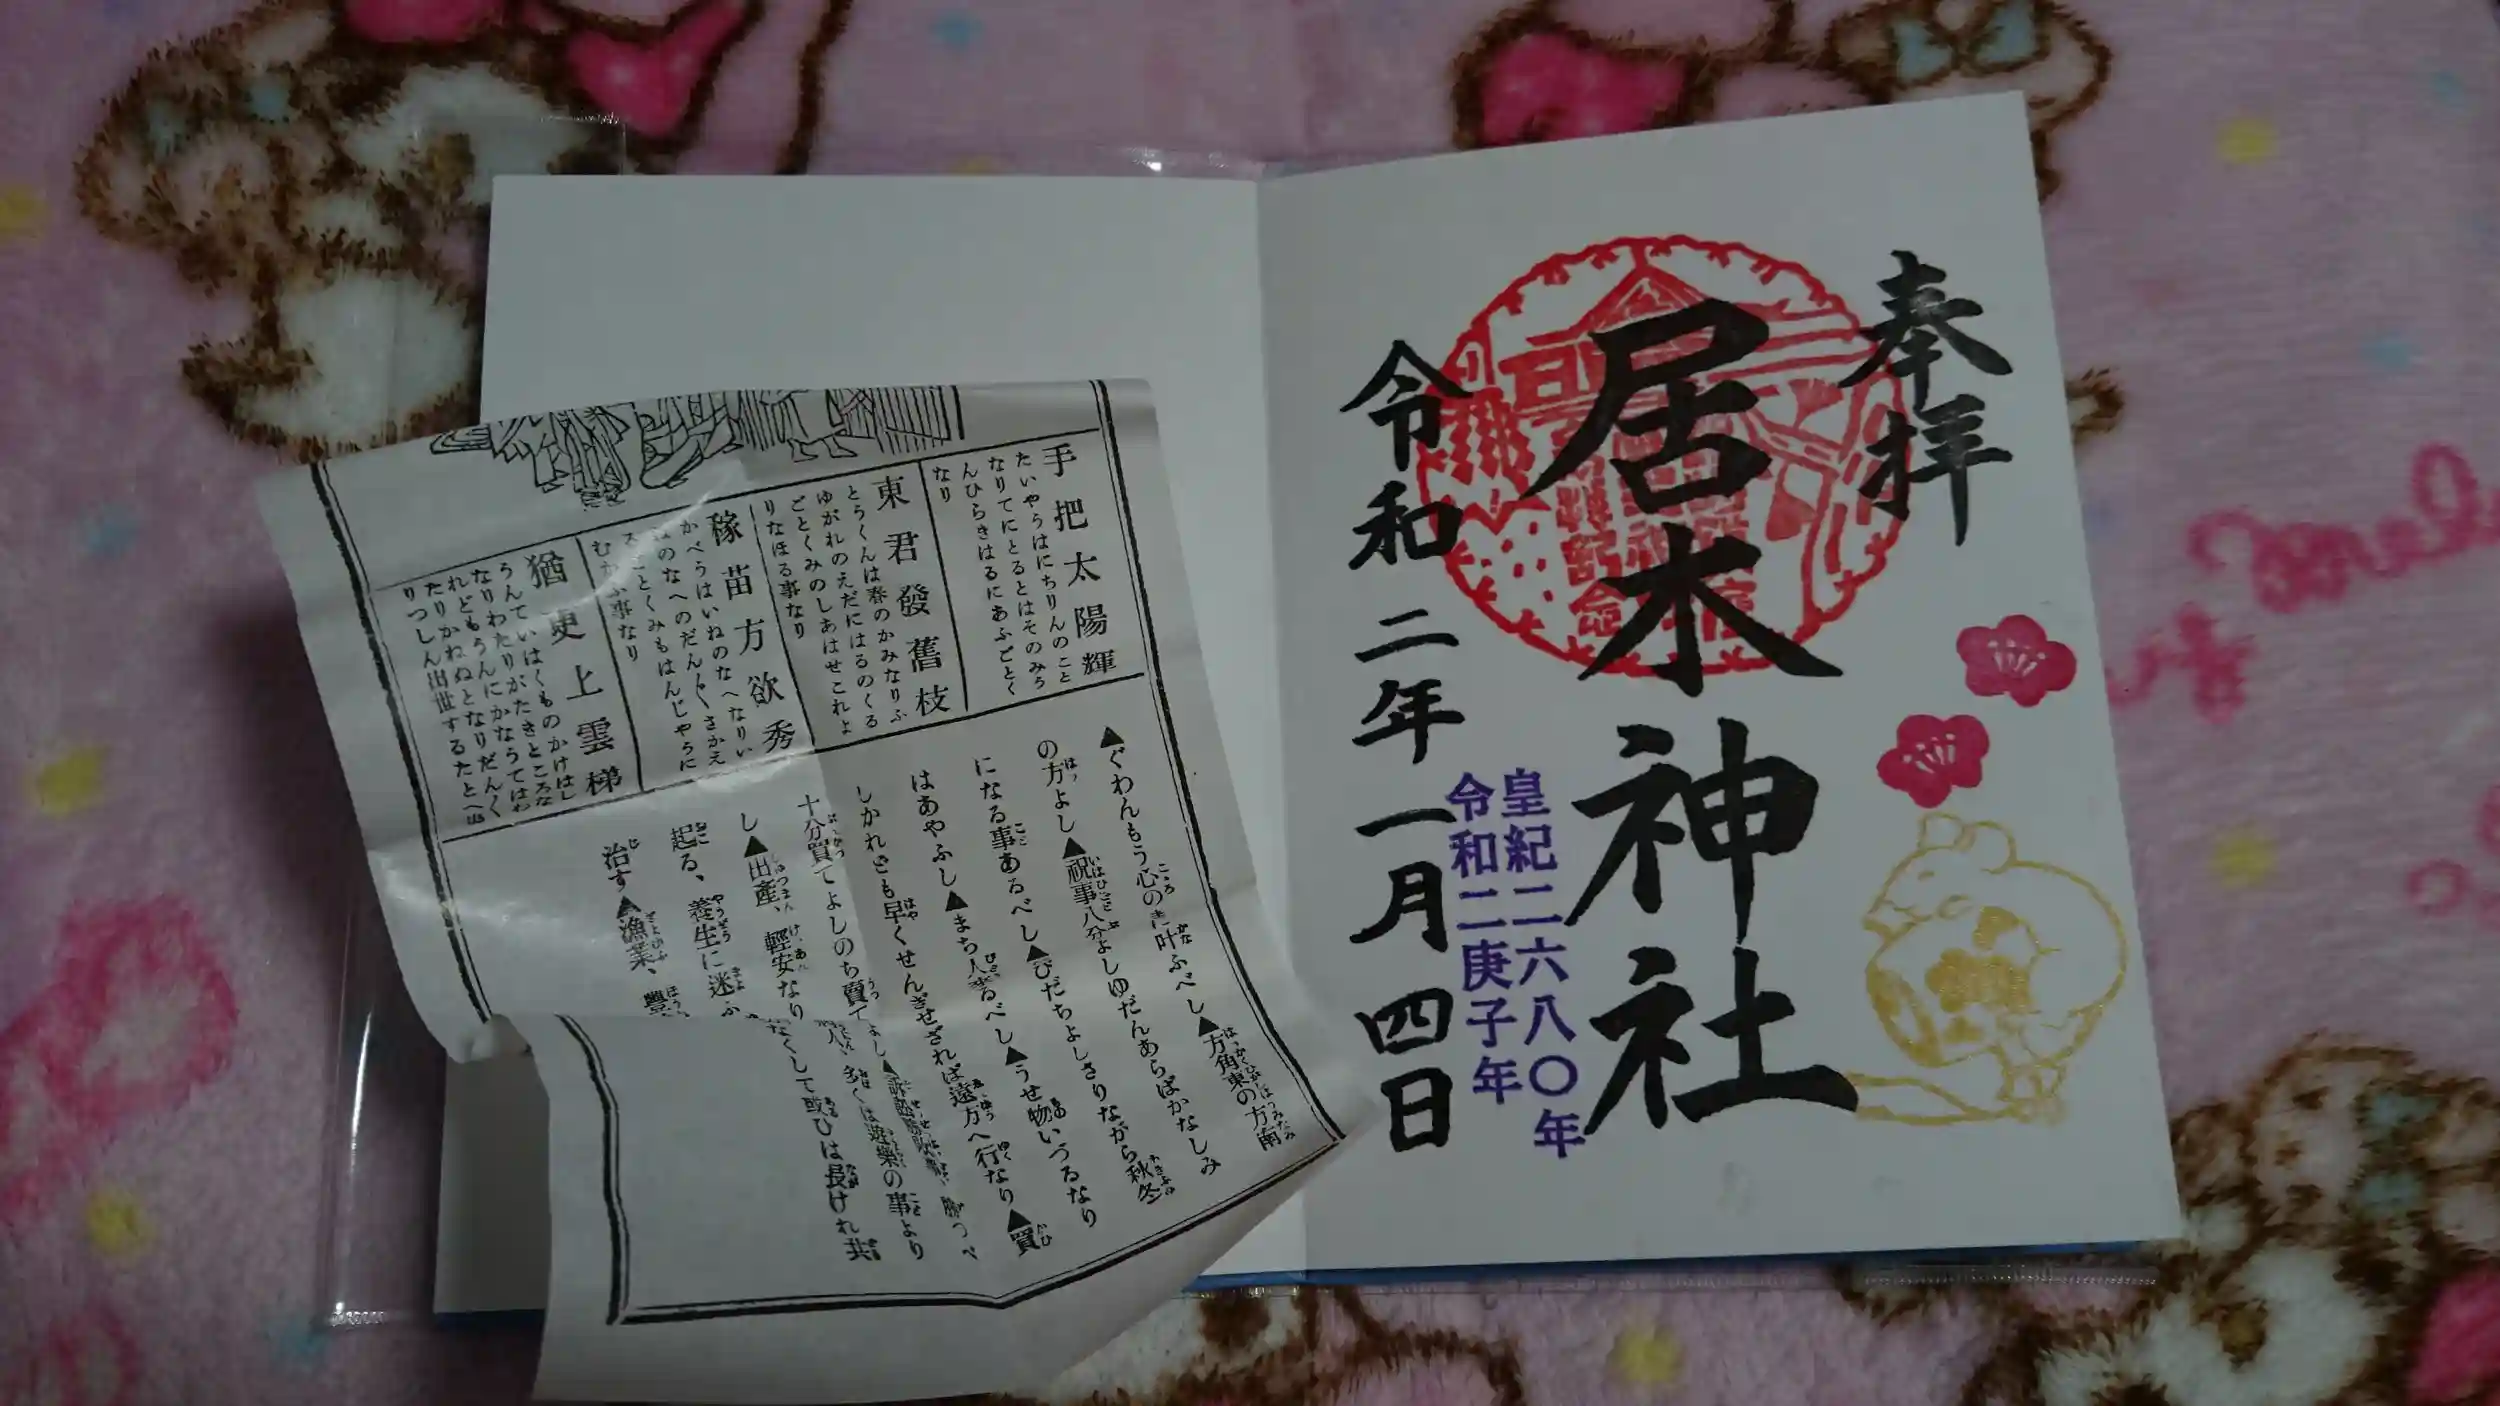 奉拝
居木神社
皇紀二六八〇年
令和二庚子年
令和二年一月四日
手把太陽輝
たいやうはにちりんのこと
なりてにとるとはそのみう
んひらきはるにあふごとく
なり
東君發舊枝
とうくんは春のかみなりふ
ゆがれのえだにはるのくる
ごとくみのしあはせこれよ
りなほる事なり
稼苗方欲秀
かべうはいねのなへなりい
ねのなへのだん〳〵さかえ
るごとくみもはんじやうに
むかふ事なり
猶更上雲梯
うんていはくものかけはし
なりわたりがたきところな
れどもうんにかなうてはわ
たりかねぬとなりだんく
りつしん出世するたとへ也
▲ぐわんもう心のまに叶ふべし▲方角東の方南
の方よし▲祝事八分よしゆだんあらばかなしみ
になる事あるべし▲ひだちよしさりながら秋冬
はあやふし▲まち人来るべし▲うせ物いづるなり
しかれども早くせんぎせざれば遠方へ行なり▲買
十分買てよしのち賣て
し▲出產、輕安なり
起る、養生に迷ふ
なくして或ひは長けれ共
治す▲漁業、豐
多くは遊樂の事より